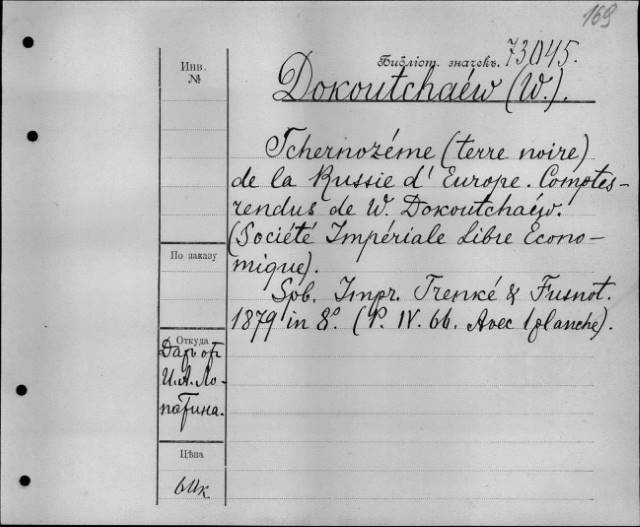 169
Инв.
№
Библіот. значекъ. 73045.
Dokoutchaéw (W.).
Tchernozéme (terre noire)
de la Russie d'Europe. Comptes-
rendus de W. Dokoutchaéw.
(Société Impériale Libre Econo-
mique).
По заказу
Spb. Impr. Trenké & Fusnot.
1879 in 8°. (P. IV. 66. Avec 1 planche).
Откуда
Даръ от
И.А. Ло-
патина.
Цѣна